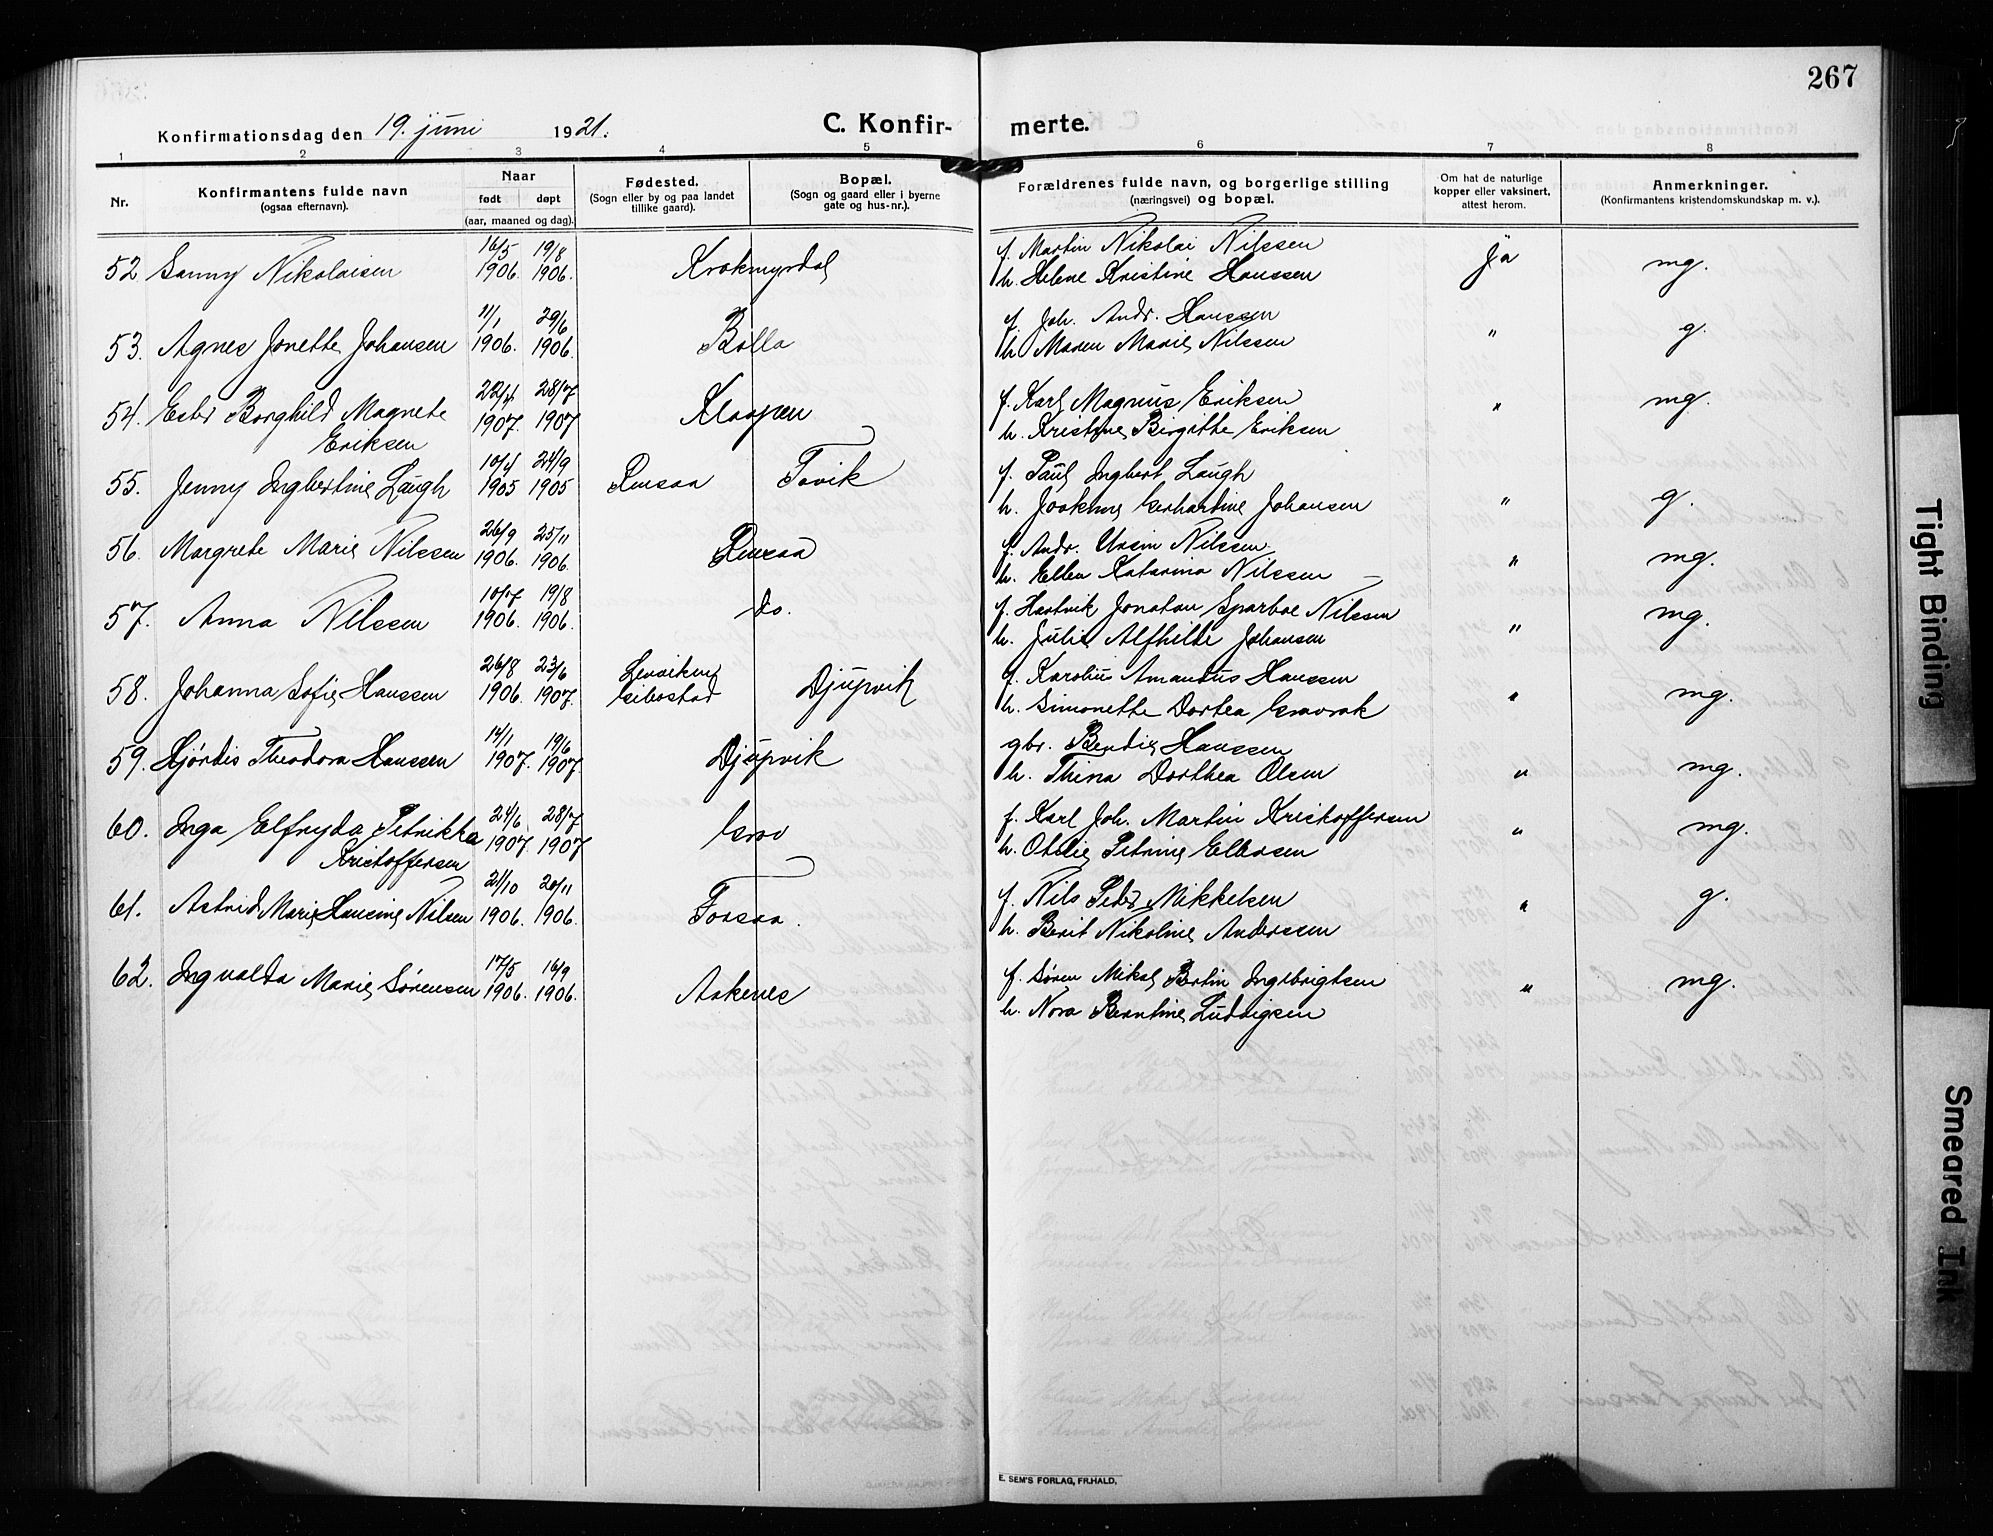 267
Konfirmationsdag den 19. juni 1921.
C. Konfir- merte.
1 2 3 4 5 6 7 8
Nr.
Konfirmantens fulde navn
(ogsaa efternavn).
Naar
født døpt
(aar, maaned og dag).
Fødested.
(Sogn eller by og paa landet
tillike gaard).
Bopæl.
(Sogn og gaard eller i byerne
gate og hus-nr.).
Forældrenes fulde navn, og borgerlige stilling
(næringsvei) og bopæl.
Om hat de naturlige
kopper eller vaksinert,
attest herom.
Anmerkninger.
(Konfirmantens kristendomskundskap m. v.).
16/5 19/8 f. Martin Nikolai Nilssen
52 Sanny Nikolaisen 1906. 1906. Krokmyrdal h. Helene Kristine Hanssen ja mg.
11/1 29/6 f. Joh. Andr. Hanssen
53. Agnes Jonette Johansen 1906. 1906. Bolla h. Maren Marie Nilssen " g.
22/4 28/7 f. Karl Magnus Eriksen
54. Ester Borghild Magnete 1907. 1907 Kloppen h. Kristine Birgitte Eriksen " mg.
Eriksen
10/4 24/9 f. Paul Ingbert Laugh
55. Jenny Ingbertine Laugh 1905 1905 Rensaa Tovik h. Joakine Gerhartine Johansen " g.
26/9 25/11 f. Andr. Ursin Nilssen
56. Margrete Marie Nilssen 1906. 1906. Rensaa h. Ellen Katarina Nilssen " mg.
10/7 19/8 f. Hartvik Jonatan Sparboe Nilssen
57. Anna Nilssen 1906. 1906. do. h. Julie Alfhilde Johansen " mg.
26/8 23/6 Lenviken g. Karolius Amandus Hanssen
58. Johanna Sofie Hanssen 1906. 1907. Gibostad Djupvik h. Simonette Dortea Gravrok " mg.
14/1 19/6 gbr. Bendie Hanssen
59. Hjørdis Theodora Hanssen 1907. 1907. Djupvik h. Thina Dorthea Olsen " mg.
24/6 28/7 f. Karl Joh. Martin Kristoffersen
60. Inga Elfryda Petrikka 1907. 1907 Grov h. Otelie Petrine Ellersen " mg.
Kristoffersen
21/10 20/11 f. Nils Peder Mikkelsen
61. Astrid Marie Hansine Nilsen 1906. 1906. Fossaa. h. Berit Nikoline Anderssen " g.
17/5 16/9 f. Søren Mikal Bertin Ingebrigtsen
62. Ingvalda Marie Sørensen 1906. 1906. Aakenes h. Nora Berntine Ludvigsen " mg.
E. SEM'S FORLAG, FR.HALD.
Tight Binding
Smeared Ink